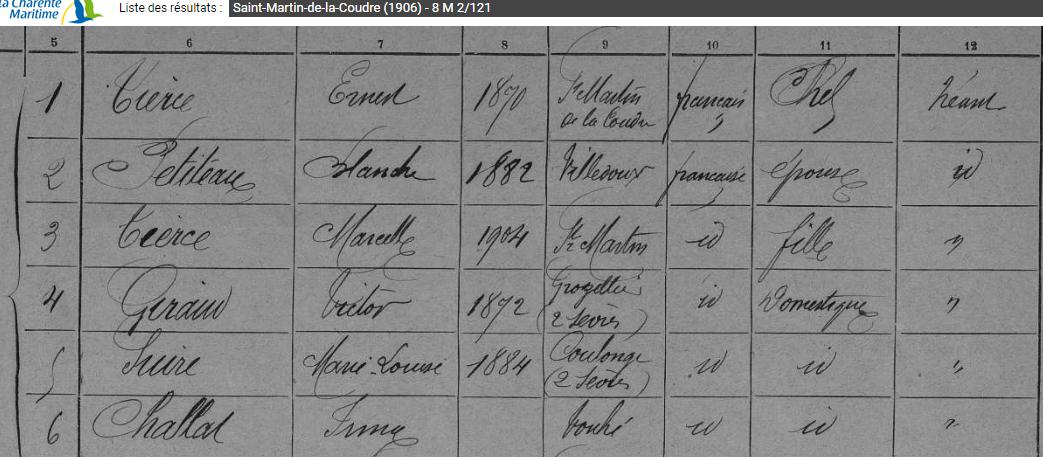 la Charente
Maritime
Liste des résultats : Saint-Martin-de-la-Coudre (1906) - 8 M 2/121
5 6 7 8 9 10 11 12
1 Tierce Ernest 1870 St Martin de la Coudre français Chef Néant
2 Petiteau Blanche 1882 Villedoux française épouse id
3 Tierce Marcelle 1904 St Martin id fille "
4 Giraud Victor 1872 (2 Sèvres) id Domestique "
5 Suire Marie-Louise 1884 Coulonge (2 Sèvres) id id "
6 Challat Irma Vouhé id id "